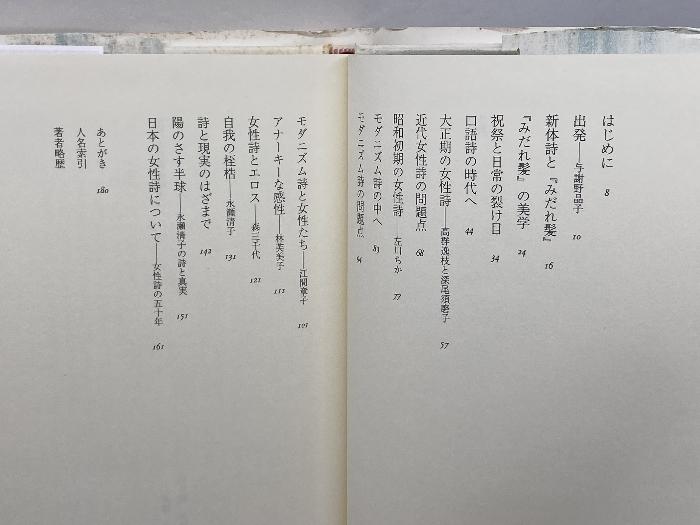 はじめに 8
出発——与謝野晶子 10
新体詩と『みだれ髪』 16
『みだれ髪』の美学 24
祝祭と日常の裂け目 34
口語詩の時代へ 44
大正期の女性詩——高群逸枝と深尾須磨子 57
近代女性詩の問題点 68
昭和初期の女性詩——左川ちか 77
モダニズム詩の中へ 83
モダニズム詩の問題点 94
モダニズム詩と女性たち——江間章子 101
アナーキーな感性——林芙美子 112
女性詩とエロス——森三千代 121
自我の桎梏——永瀬清子 131
詩と現実のはざまで 142
陽のさす半球——永瀬清子の詩と真実 151
日本の女性詩について——女性詩の五十年 161
あとがき 180
人名索引
著者略歴